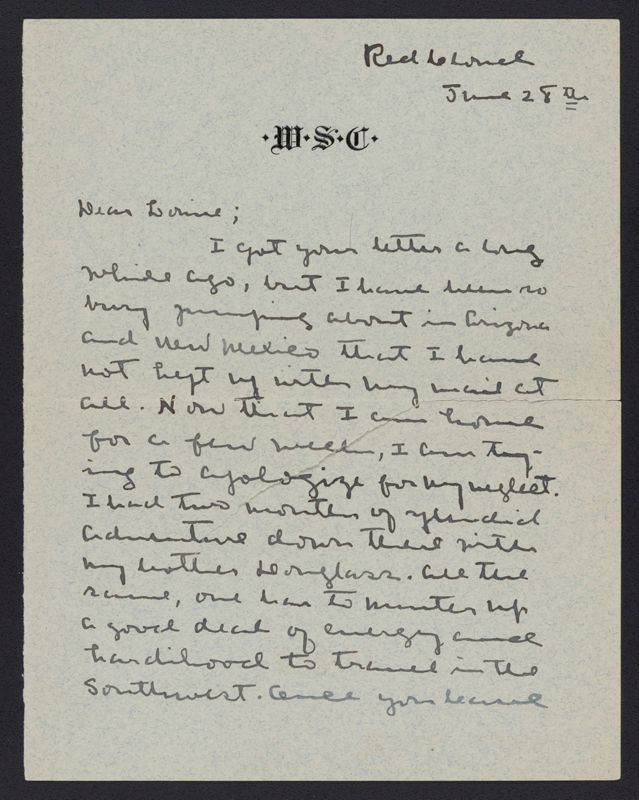 Red Cloud
June 28th
·W·S·C·
Dear Louise;
I got your letter a long
while ago, but I have been so
busy jumping about in Arizona
and New Mexico that I have
not kept up with my mail at
all. Now that I am home
for a few weeks, I am try-
ing to apologize for my neglect.
I had two months of splendid
adventure down there with
my brother Douglass. All the
same, one has to muster up
a good deal of energy and
hardihood to travel in the
Southwest. Once you leave